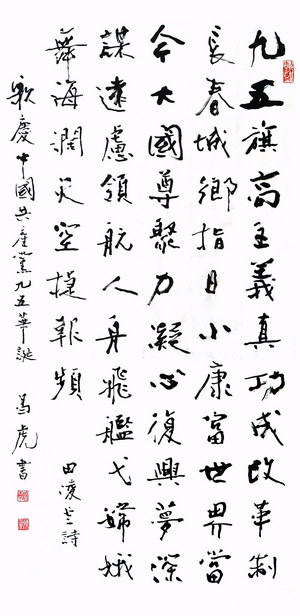 九五旗高主義真功成改革制
長春城鄉指日小康富世界當
今大國尊聚力凝心復興夢深
謀遠慮領航人舟飛艦弋嫦娥
舞海闊天空捷報頻
田凌詩
歡慶中國共產黨九五華誕 虎書